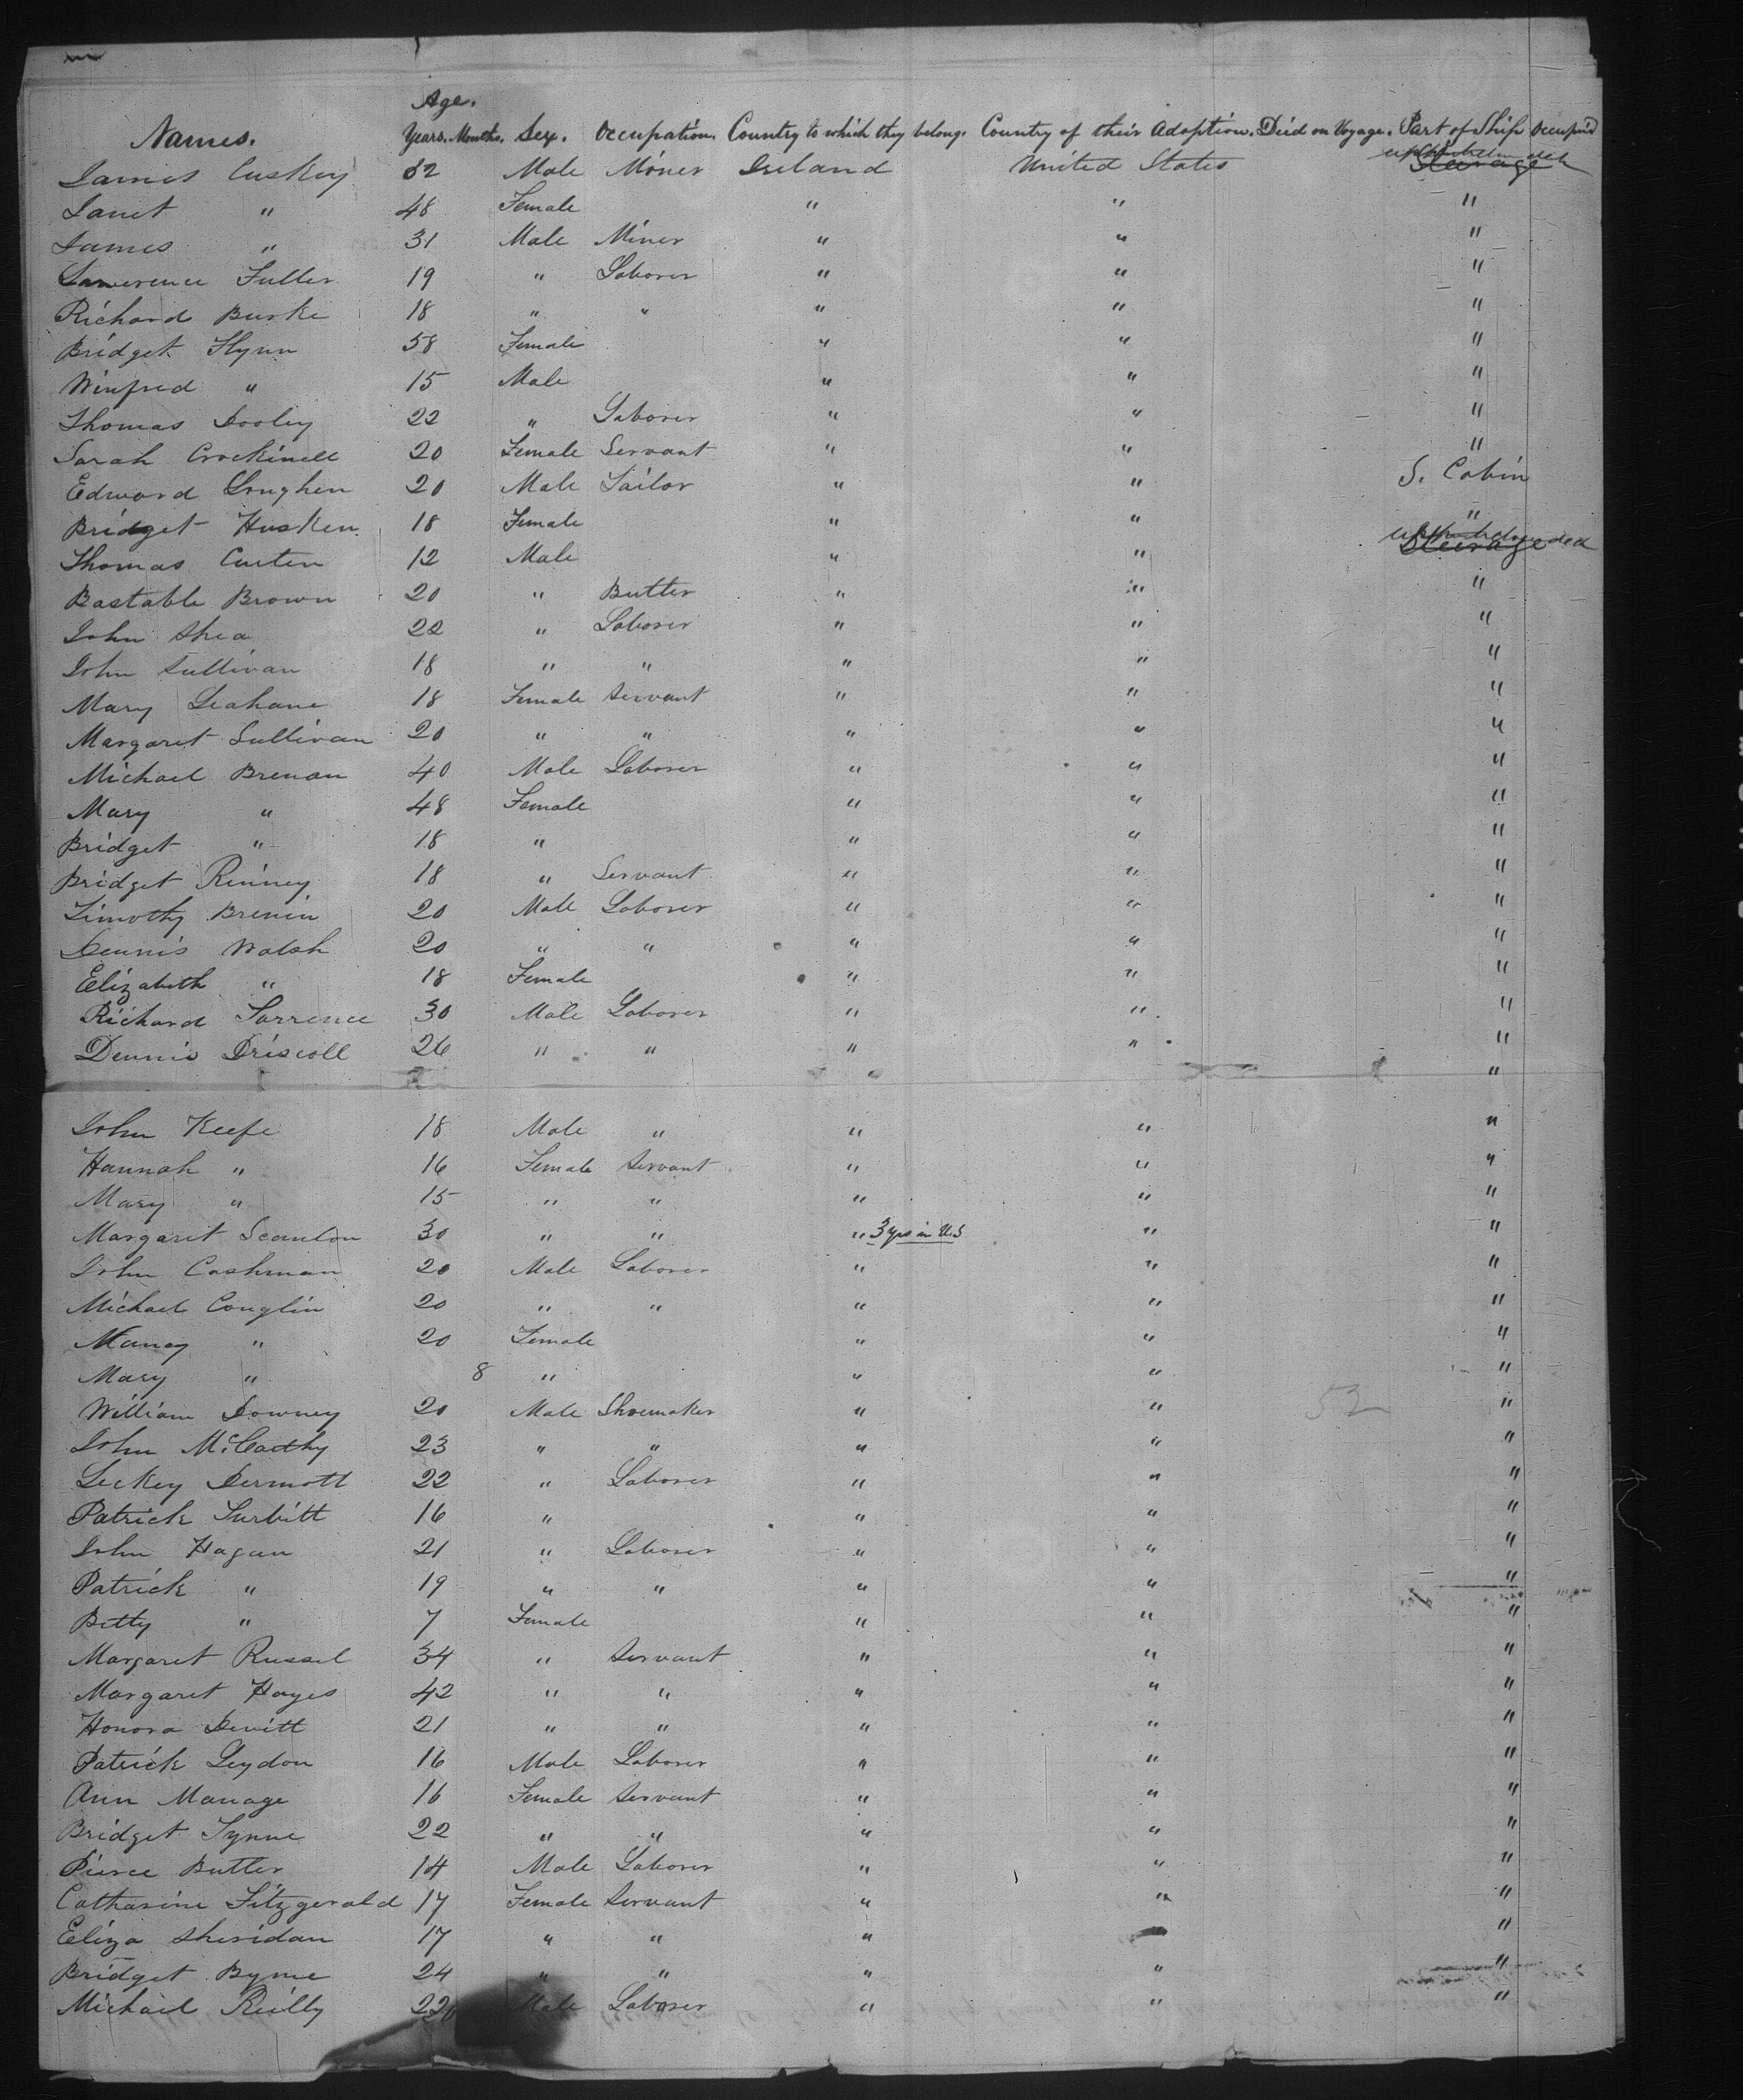 Age.
Names. Years. Months. Sex. Occupation. Country to which they belong. Country of their Adoption. Died on Voyage. Part of Ship Occupied
James Cuskey 52 Male Miner Ireland United States Steerage
Janet " 48 Female " " "
James " 31 Male Miner " " "
Lawerence Fuller 19 " Laborer " " "
Richard Burke 18 " " " " "
Bridget Flynn 58 Female " " "
Winfred " 15 Male " " "
Thomas Dooley 22 " Laborer " " "
Sarah Crockinell 20 Female Servant " " "
Edward Loughen 20 Male Tailor " " S. Cabin
Bridget Husken 18 Female " " "
Thomas Curten 12 Male " " Steerage
Bastable Brown 20 " Butler " " "
John Shea 22 " Laborer " " "
John Sullivan 18 " " " " "
Mary Leahane 18 Female Servant " " "
Margaret Sullivan 20 " " " " "
Michael Brenan 40 Male Laborer " " "
Mary " 48 Female " " "
Bridget " 18 " " " "
Bridget Rinney 18 " Servant " " "
Timothy Brenin 20 Male Laborer " " "
Dennis Walsh 20 " " " " "
Elizabeth " 18 Female " " "
Richard Torrence 30 Male Laborer " " "
Dennis Driscoll 26 " " " " "
" "
John Keefe 18 Male " " " "
Hannah " 16 Female Servant " " "
Mary " 15 " " " " "
Margaret Scanlon 30 " " " 3 yrs in U.S " "
John Cashman 20 Male Laborer " " "
Michael Conglin 20 " " " " "
Nancy " 20 Female " " "
Mary " 8 " " " "
William Downey 20 Male Shoemaker " " 52 "
John McCarthy 23 " " " " "
Leckey Dermott 22 " Laborer " " "
Patrick Turbitt 16 " " " "
John Hagan 21 " Laborer " " "
Patrick " 19 " " " " "
Betty " 7 Female " " "
Margaret Russel 34 " Servant " " "
Margaret Hayes 42 " " " " "
Honora Devitt 21 " " " " "
Patrick Leydon 16 Male Laborer " " "
Ann Manage 16 Female Servant " " "
Bridget Tynne 22 " " " " "
Pierce Butler 14 Male Laborer " " "
Catharine Fitzgerald 17 Female Servant " " "
Eliza Sheridan 17 " " " "
Bridget Byrne 24 " " " " "
Michael Reilly 22 Male Laborer " " "